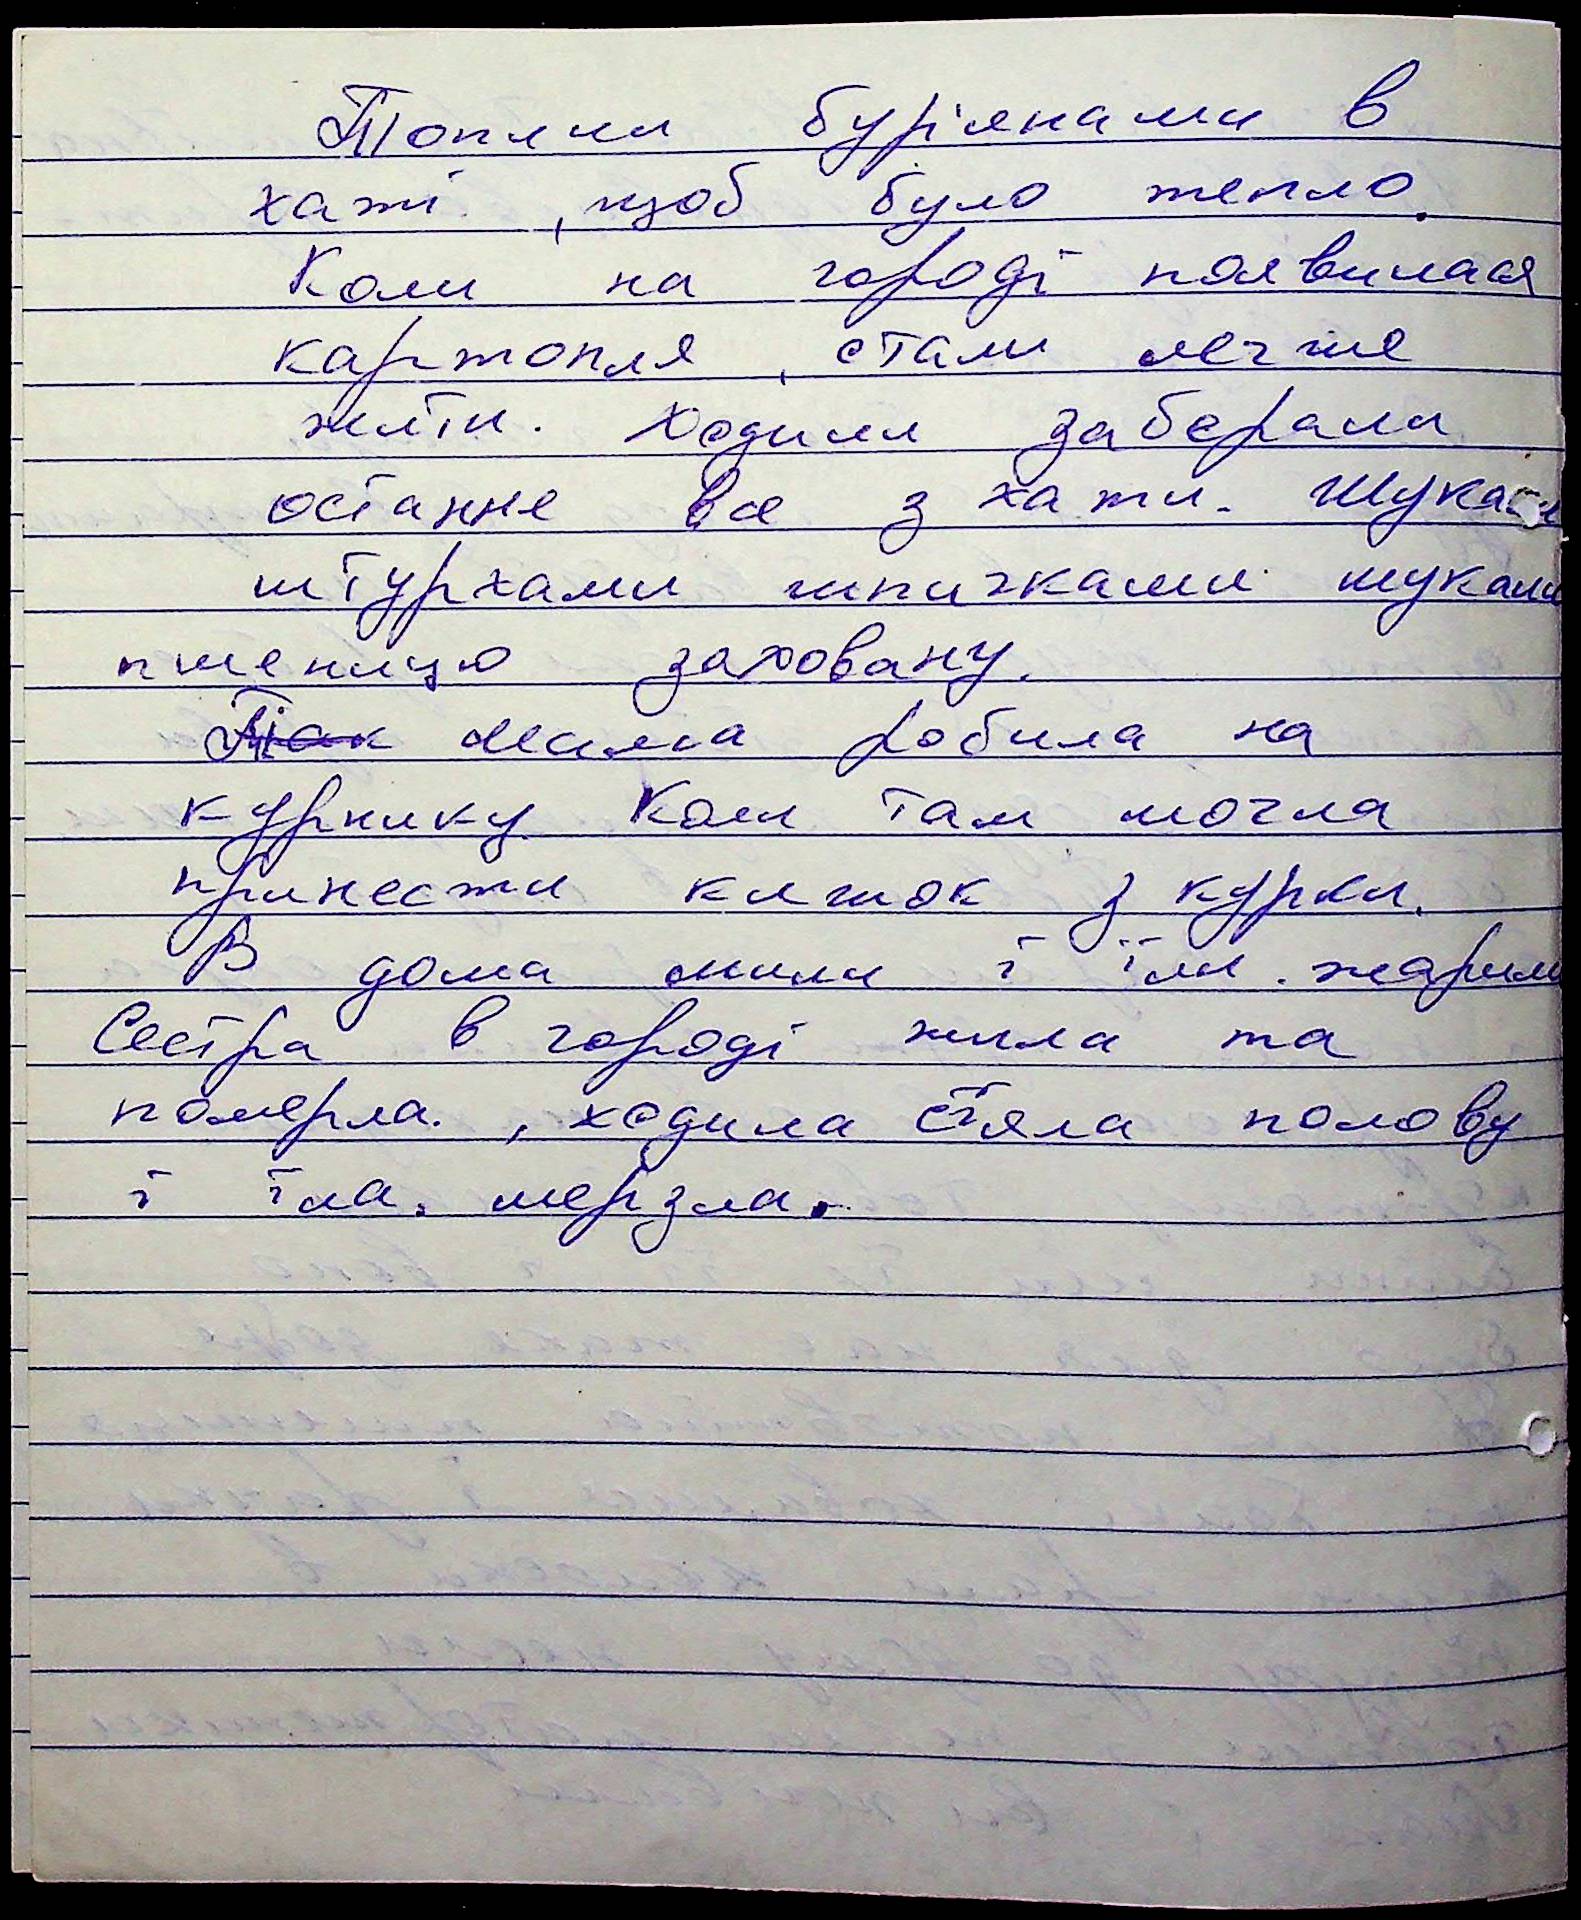 Топили бур'янами в
хаті, щоб було тепло.
Коли на городі появилася
картопля, стали легше
жити. Ходили заберали
останнє все з хати. Шукали
штурхами шпичками шукали
пшеницю заховану.
Так Мама робила на
курнику Коли там могла
принести кишок з курки.
В дома мили і їли. жарили
Сестра в городі жила та
померла., ходила сіяла полову
і їла. мерзла.